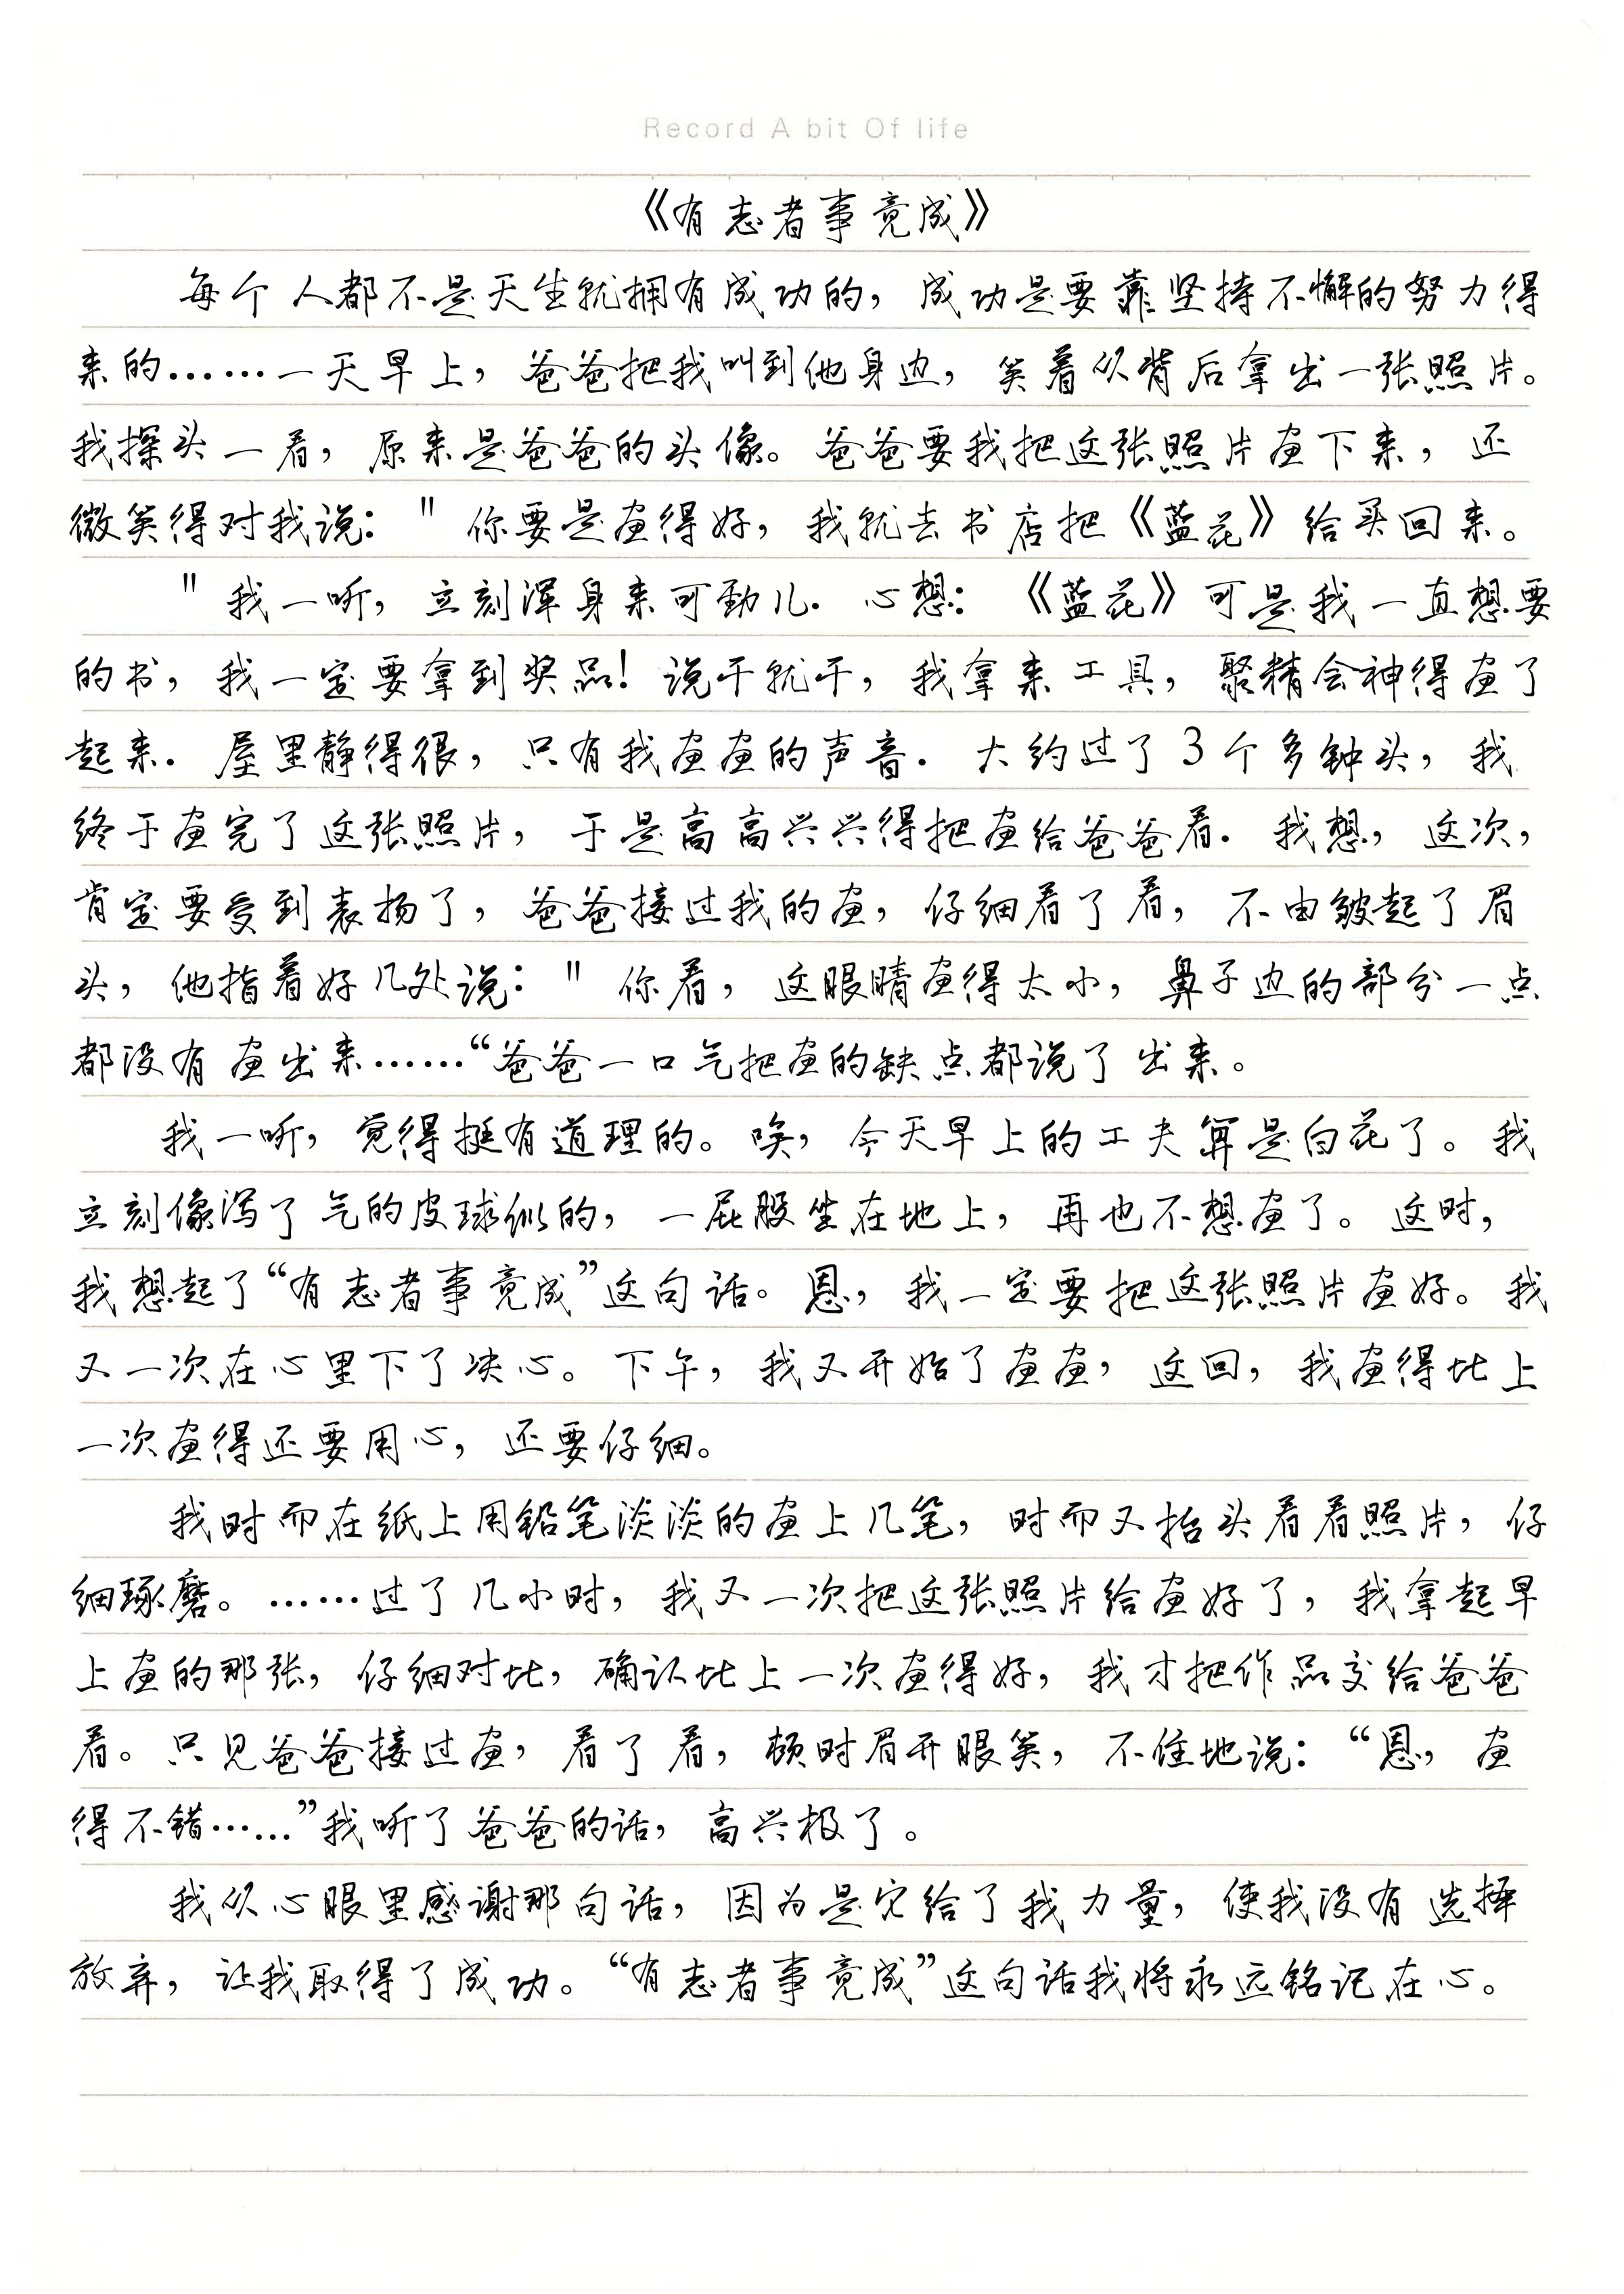 Record A bit Of life
《有志者事竟成》
每个人都不是天生就拥有成功的，成功是要靠坚持不懈的努力得
来的……一天早上，爸爸把我叫到他身边，笑着从背后拿出一张照片。
我探头一看，原来是爸爸的头像。爸爸要我把这张照片画下来，还
微笑得对我说："你要是画得好，我就去书店把《蓝花》给买回来。
"我一听，立刻浑身来可劲儿．心想：《蓝花》可是我一直想要
的书，我一定要拿到奖品！说干就干，我拿来工具，聚精会神得画了
起来．屋里静得很，只有我画画的声音．大约过了3个多钟头，我
终于画完了这张照片，于是高高兴兴得把画给爸爸看．我想，这次，
肯定要受到表扬了，爸爸接过我的画，仔细看了看，不由皱起了眉
头，他指着好几处说："你看，这眼睛画得太小，鼻子边的部分一点
都没有画出来……“爸爸一口气把画的缺点都说了出来。
我一听，觉得挺有道理的。唉，今天早上的工夫算是白花了。我
立刻像泻了气的皮球似的，一屁股坐在地上，再也不想画了。这时，
我想起了“有志者事竟成”这句话。恩，我一定要把这张照片画好。我
又一次在心里下了决心。下午，我又开始了画画，这回，我画得比上
一次画得还要用心，还要仔细。
我时而在纸上用铅笔淡淡的画上几笔，时而又抬头看看照片，仔
细琢磨。……过了几小时，我又一次把这张照片给画好了，我拿起早
上画的那张，仔细对比，确认比上一次画得好，我才把作品交给爸爸
看。只见爸爸接过画，看了看，顿时眉开眼笑，不住地说：“恩，画
得不错……”我听了爸爸的话，高兴极了。
我从心眼里感谢那句话，因为是它给了我力量，使我没有选择
放弃，让我取得了成功。“有志者事竟成”这句话我将永远铭记在心。